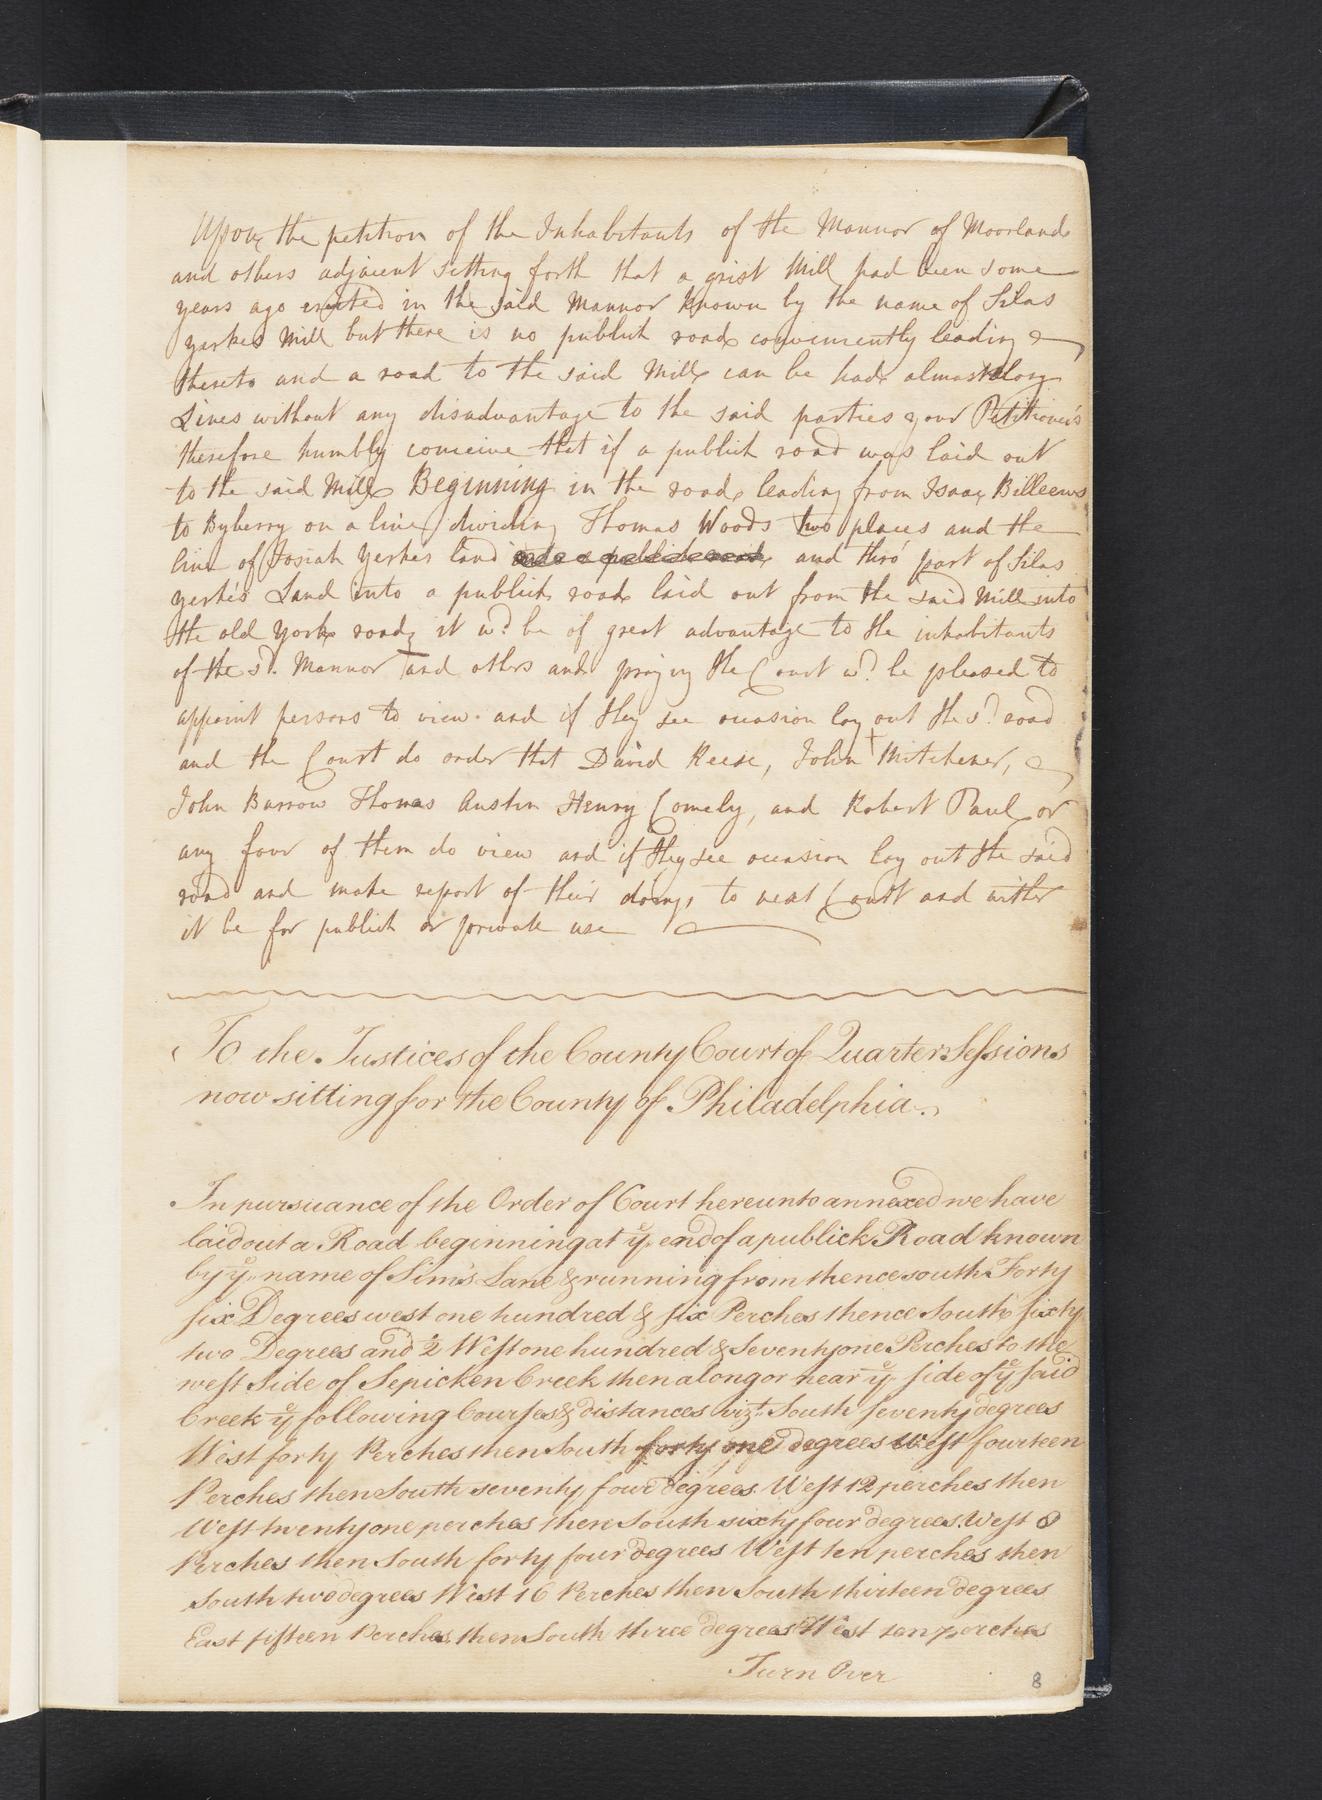 Upon the petition of the Inhabitants of the Mannor of Moorland
and others adjacent setting forth that a grist Mill had been some
years ago erected in the said Mannor known by the name of Silas
yerkes Mill but there is no publick road conveniently leading
thereto and a road to the said Mill can be had almost along
Lines without any disadvantage to the said parties your Petitioners
therefore humbly conceive that if a publick road was laid out
to the said Mill Beginning in the road leading from Isaac Billeews
to Byberry on a line dividing Thomas Woods two places and the
line of Josiah Yerkes land and a publick road and thro' part of Silas
yerke's Land into a publick road laid out from the said Mill into
the old york road it wd. be of great advantage to the inhabitants
of the sd. Mannor and others and praying the Court wd. be pleased to
appoint persons to view and if they see occasion lay out the sd. road
and the Court do order that David Reese, John Mitchener,
John Barrow Thomas Austin Henry Comely, and Robert Paul or
any four of them do view and if they see occasion lay out the said
road and make report of their doings to next Court and wither
it be for publick or private use
To the Justices of the County Court of Quarter Sessions
now sitting for the County of Philadelphia.
In pursuance of the Order of Court hereunto annexed we have
laid out a Road beginning at ye end of a publick Road known
by ye name of Sim's Lane & running from thence south Forty
six Degrees west one hundred & six Perches thence South sixty
two Degrees and ½ West one hundred & Seventy one Perches to the
west Side of Sepicken Creek then along or near ye side of ye said
Creek ye following Courses & distances vizt. South seventy degrees
West forty Perches then South forty one degrees West fourteen
Perches then South seventy four degrees West 12 perches then
West twenty one perches then South sixty four degrees West 8
Perches then South forty four degrees West ten perches then
South two degrees West 16 Perches then South thirteen degrees
East fifteen Perches then South three degrees West ten perches
Turn Over
8